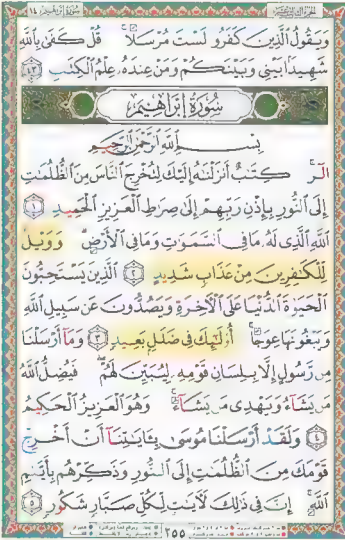 وَيَقُولُ الَّذِينَ كَفَرُوا لَسْتَ مُرْسَلًا ۚ قُلْ كَفَىٰ بِاللَّهِ
شَهِيدًا بَيْنِي وَبَيْنَكُمْ وَمَنْ عِندَهُ عِلْمُ الْكِتَٰبِ ٤٣
سُورَةُ إِبْرَاهِيمَ
بِسْمِ اللَّهِ الرَّحْمَٰنِ الرَّحِيمِ
الٓر ۚ كِتَٰبٌ أَنزَلْنَٰهُ إِلَيْكَ لِتُخْرِجَ النَّاسَ مِنَ الظُّلُمَٰتِ
إِلَى النُّورِ بِإِذْنِ رَبِّهِمْ إِلَىٰ صِرَٰطِ الْعَزِيزِ الْحَمِيدِ ١
اللَّهِ الَّذِي لَهُ مَا فِي السَّمَٰوَٰتِ وَمَا فِي الْأَرْضِ ۗ وَوَيْلٌ
لِّلْكَٰفِرِينَ مِنْ عَذَابٍ شَدِيدٍ ٢ الَّذِينَ يَسْتَحِبُّونَ
الْحَيَوٰةَ الدُّنْيَا عَلَى الْآخِرَةِ وَيَصُدُّونَ عَن سَبِيلِ اللَّهِ
وَيَبْغُونَهَا عِوَجًا ۚ أُولَٰئِكَ فِي ضَلَٰلٍ بَعِيدٍ ٣ وَمَا أَرْسَلْنَا
مِن رَّسُولٍ إِلَّا بِلِسَانِ قَوْمِهِ لِيُبَيِّنَ لَهُمْ ۖ فَيُضِلُّ اللَّهُ
مَن يَشَاءُ وَيَهْدِي مَن يَشَاءُ ۚ وَهُوَ الْعَزِيزُ الْحَكِيمُ
٤ وَلَقَدْ أَرْسَلْنَا مُوسَىٰ بِـَٔايَٰتِنَا أَنْ أَخْرِجْ
قَوْمَكَ مِنَ الظُّلُمَٰتِ إِلَى النُّورِ وَذَكِّرْهُم بِأَيَّىٰمِ
اللَّهِ ۚ إِنَّ فِي ذَٰلِكَ لَآيَٰتٍ لِّكُلِّ صَبَّارٍ شَكُورٍ ٥
٢٥٥